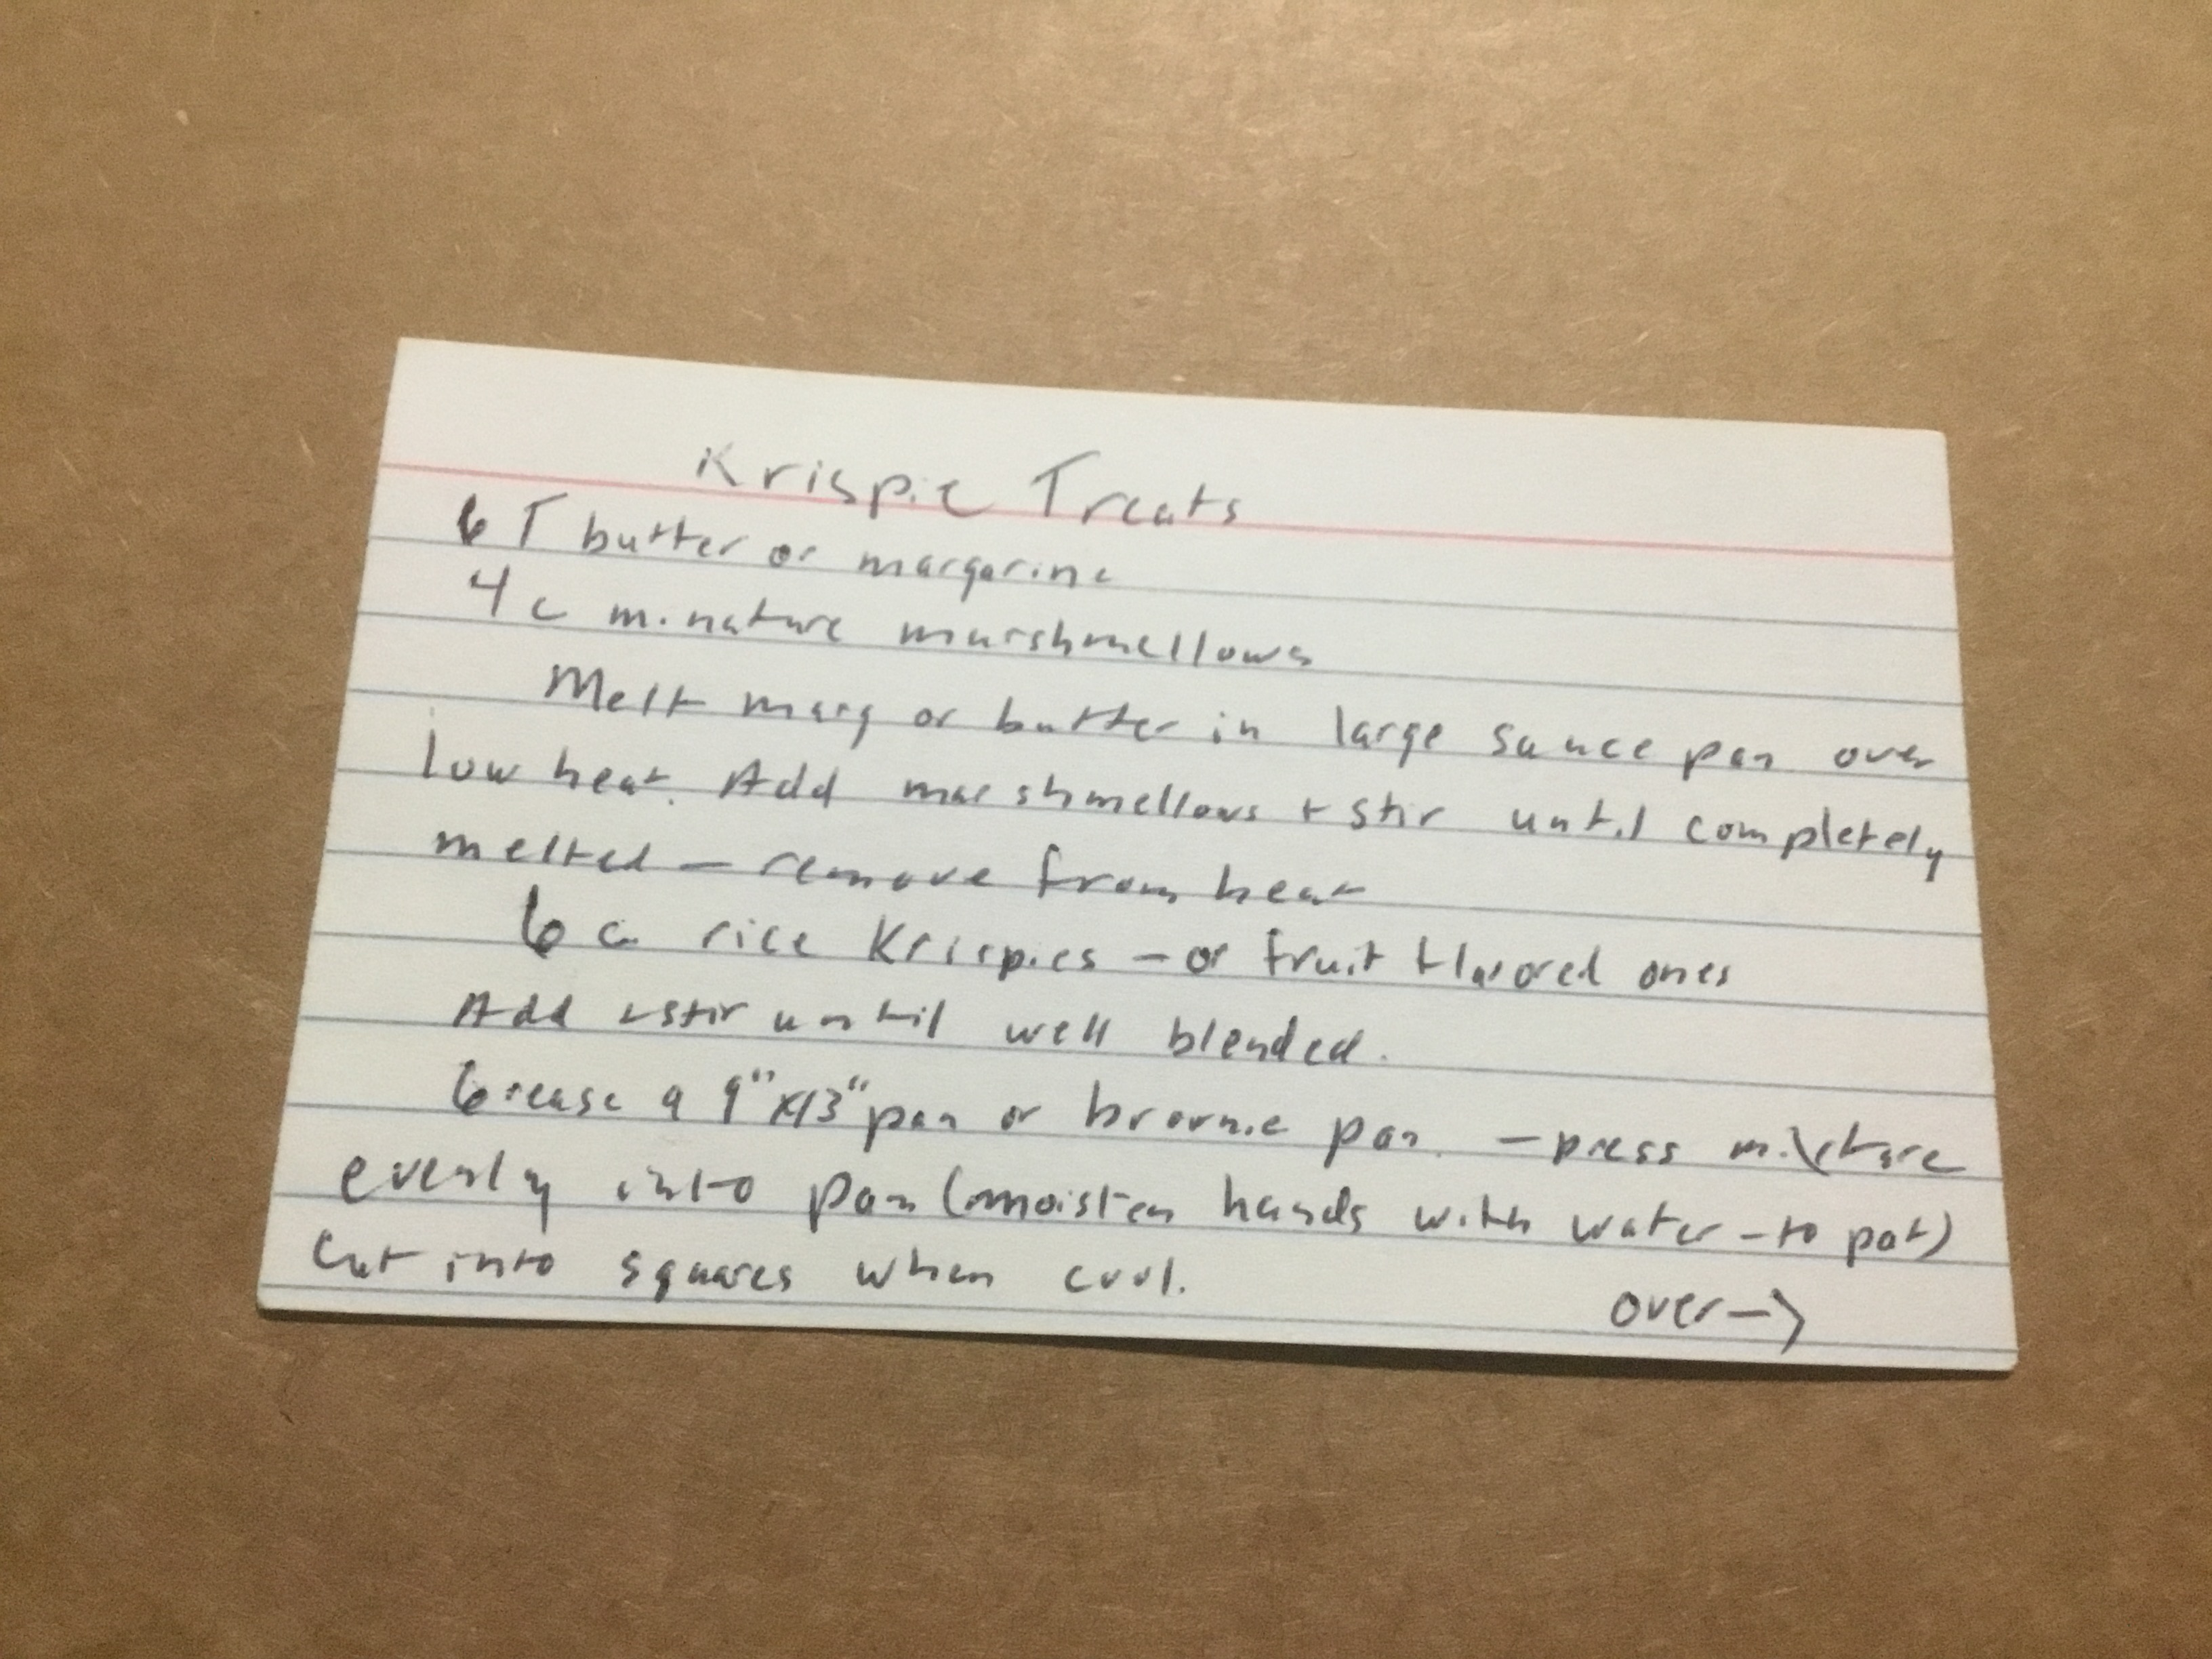 Krispie Treats
6 T butter or margarine
4 c minature marshmellows
Melt marg or butter in large sauce pan over
low heat. Add marshmellows + stir until completely
melted — remove from heat
6 c rice Krispies — or fruit flavored ones
Add + stir until well blended.
Grease a 9" x 13" pan or brownie pan. — press mixture
evenly into pan (moisten hands with water - to pat)
Cut into squares when cool.
over →